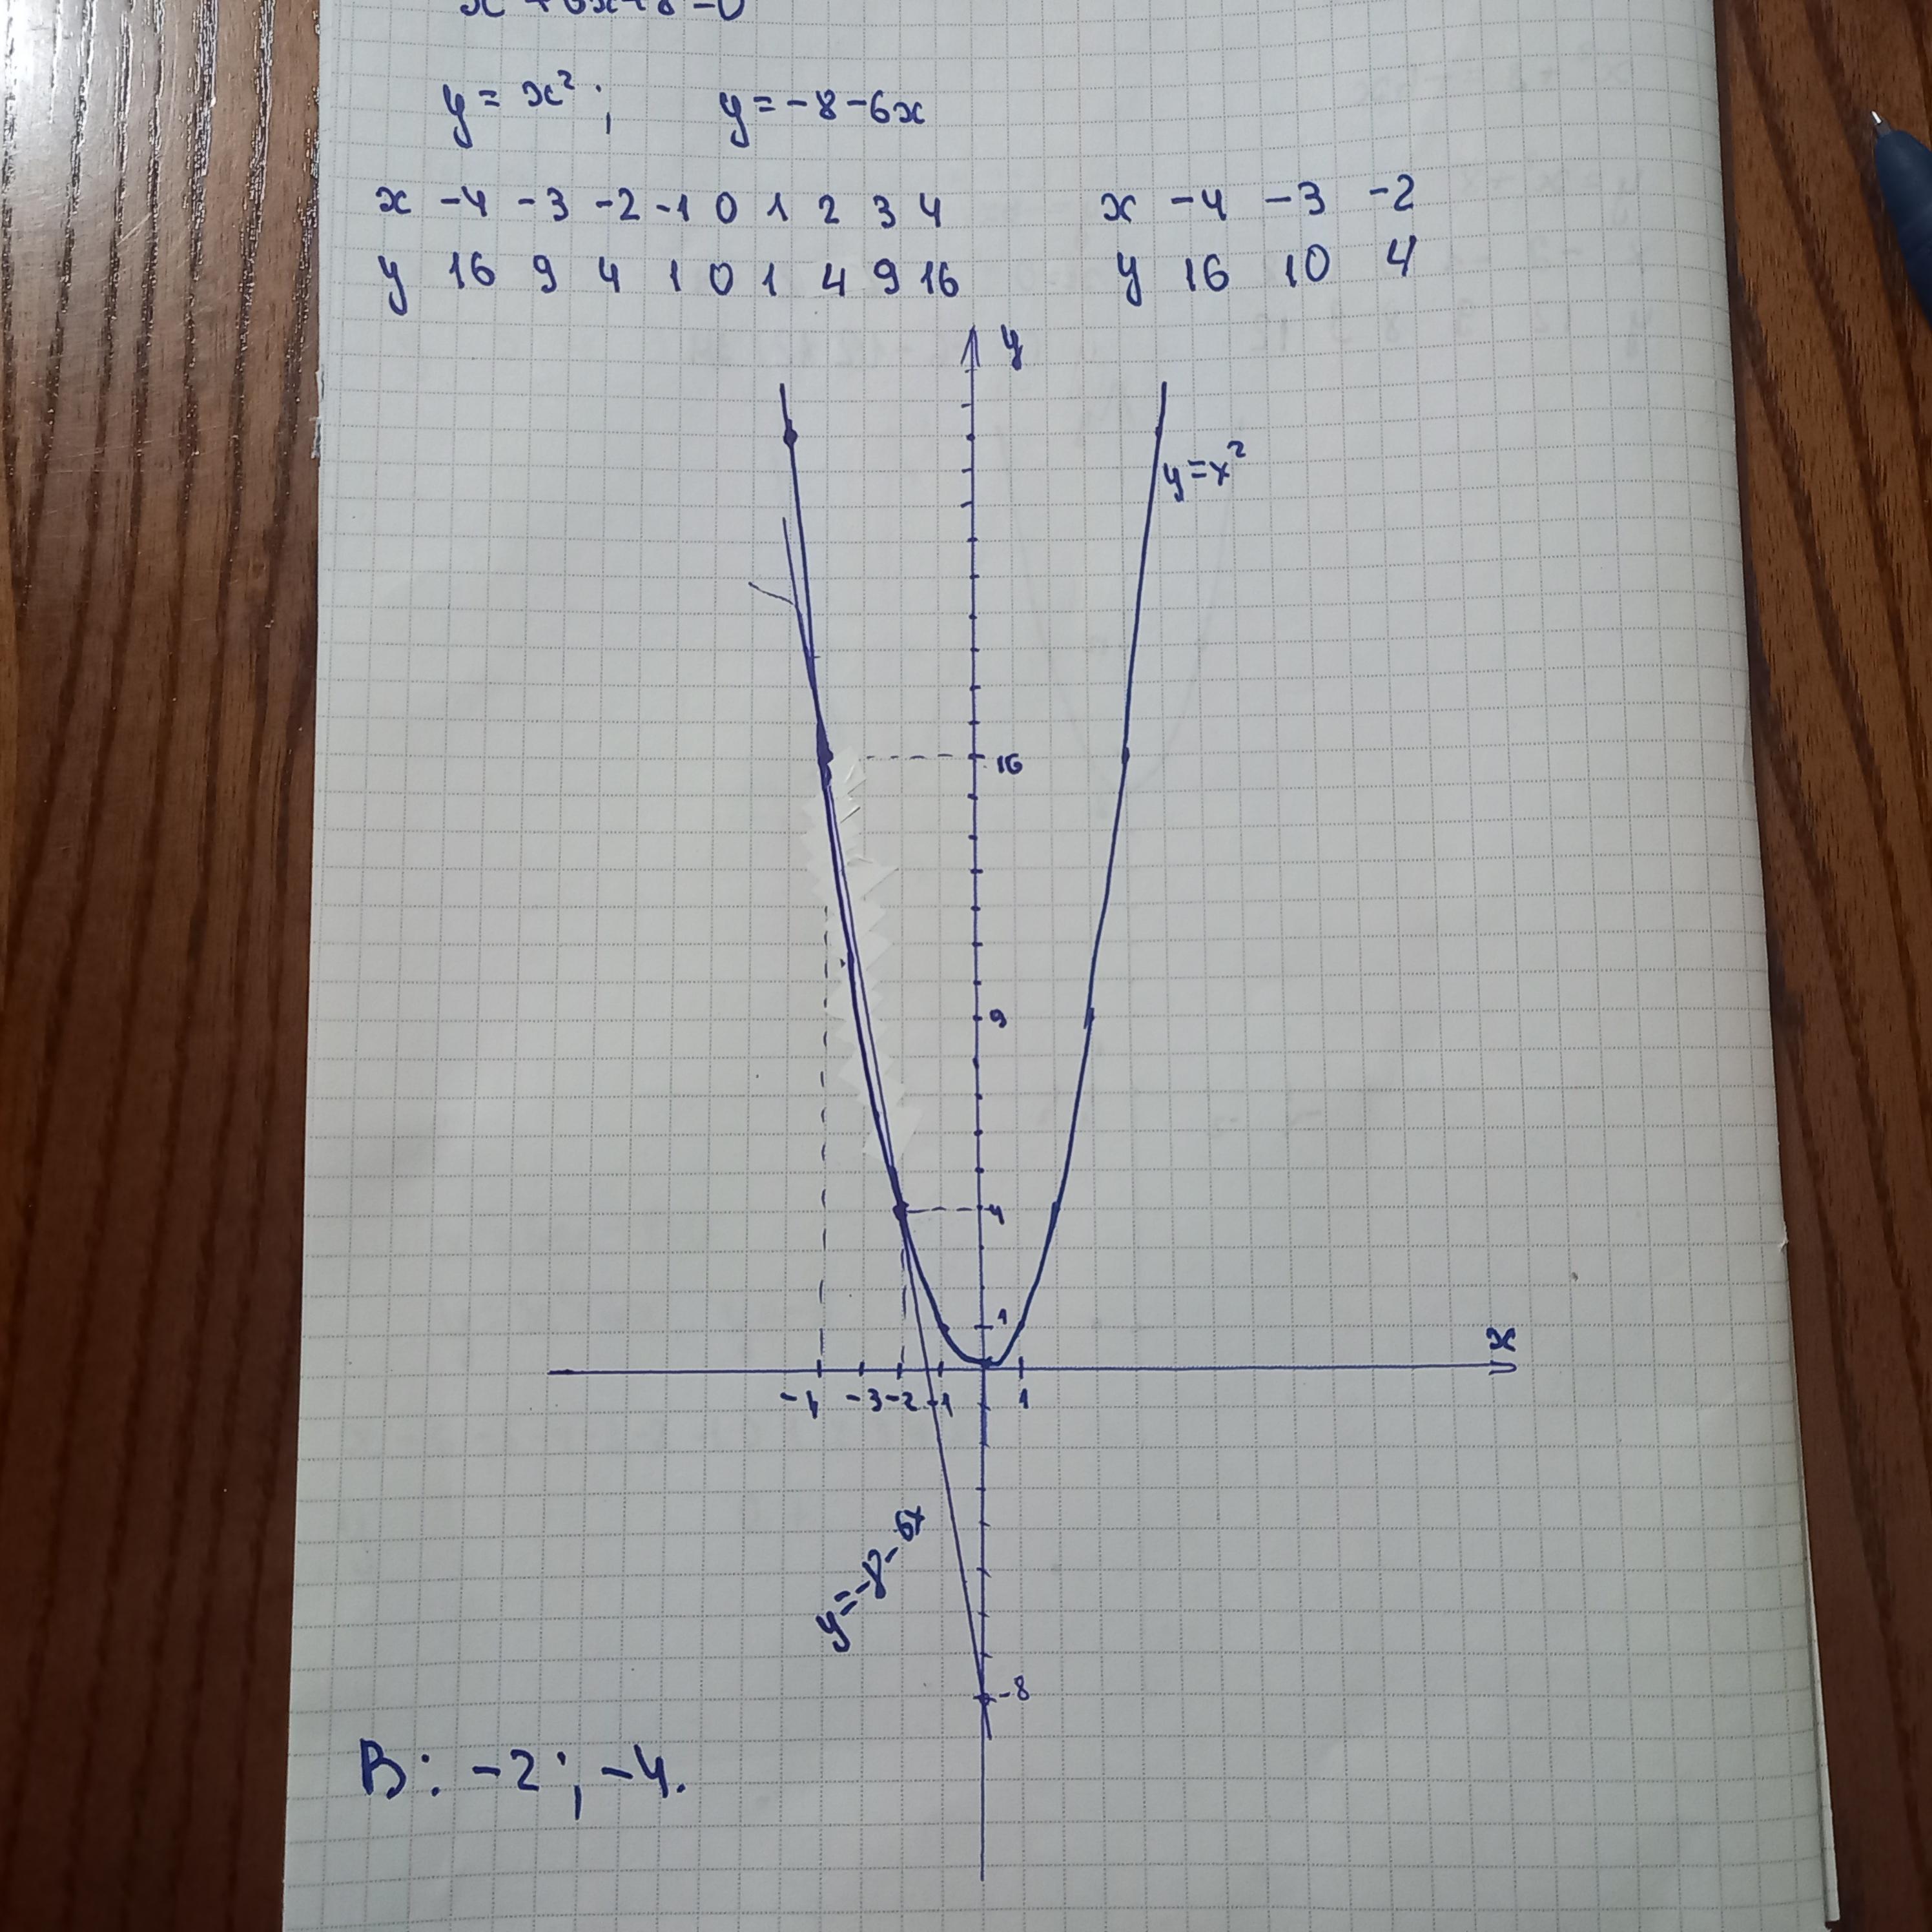 x² + 6x + 8 = 0
y = x²; y = -8 - 6x
x -4 -3 -2 -1 0 1 2 3 4 x -4 -3 -2
y 16 9 4 1 0 1 4 9 16 y 16 10 4
y
y = x²
16
9
4
1
x
-4 -3 -2 -1 1
y = -8 - 6x
-8
В: -2; -4.